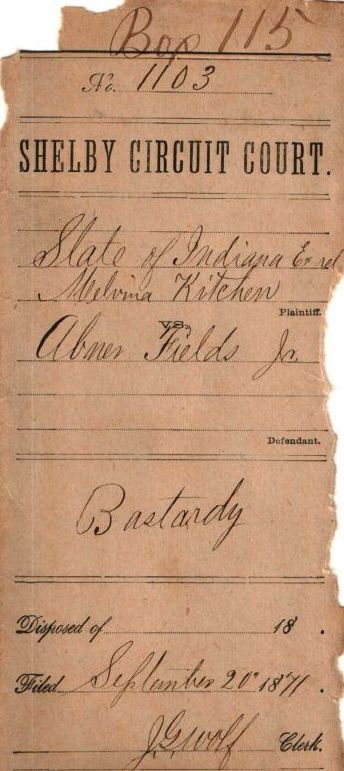 Box 115
No. 1103
SHELBY CIRCUIT COURT.
State of Indiana Ex rel
Melvina Kitchen
Plaintiff.
VS.
Abner Fields Jr
Defendant.
Bastardy
Disposed of 18 .
Filed September 20" 1871.
J.G. Wolf Clerk.